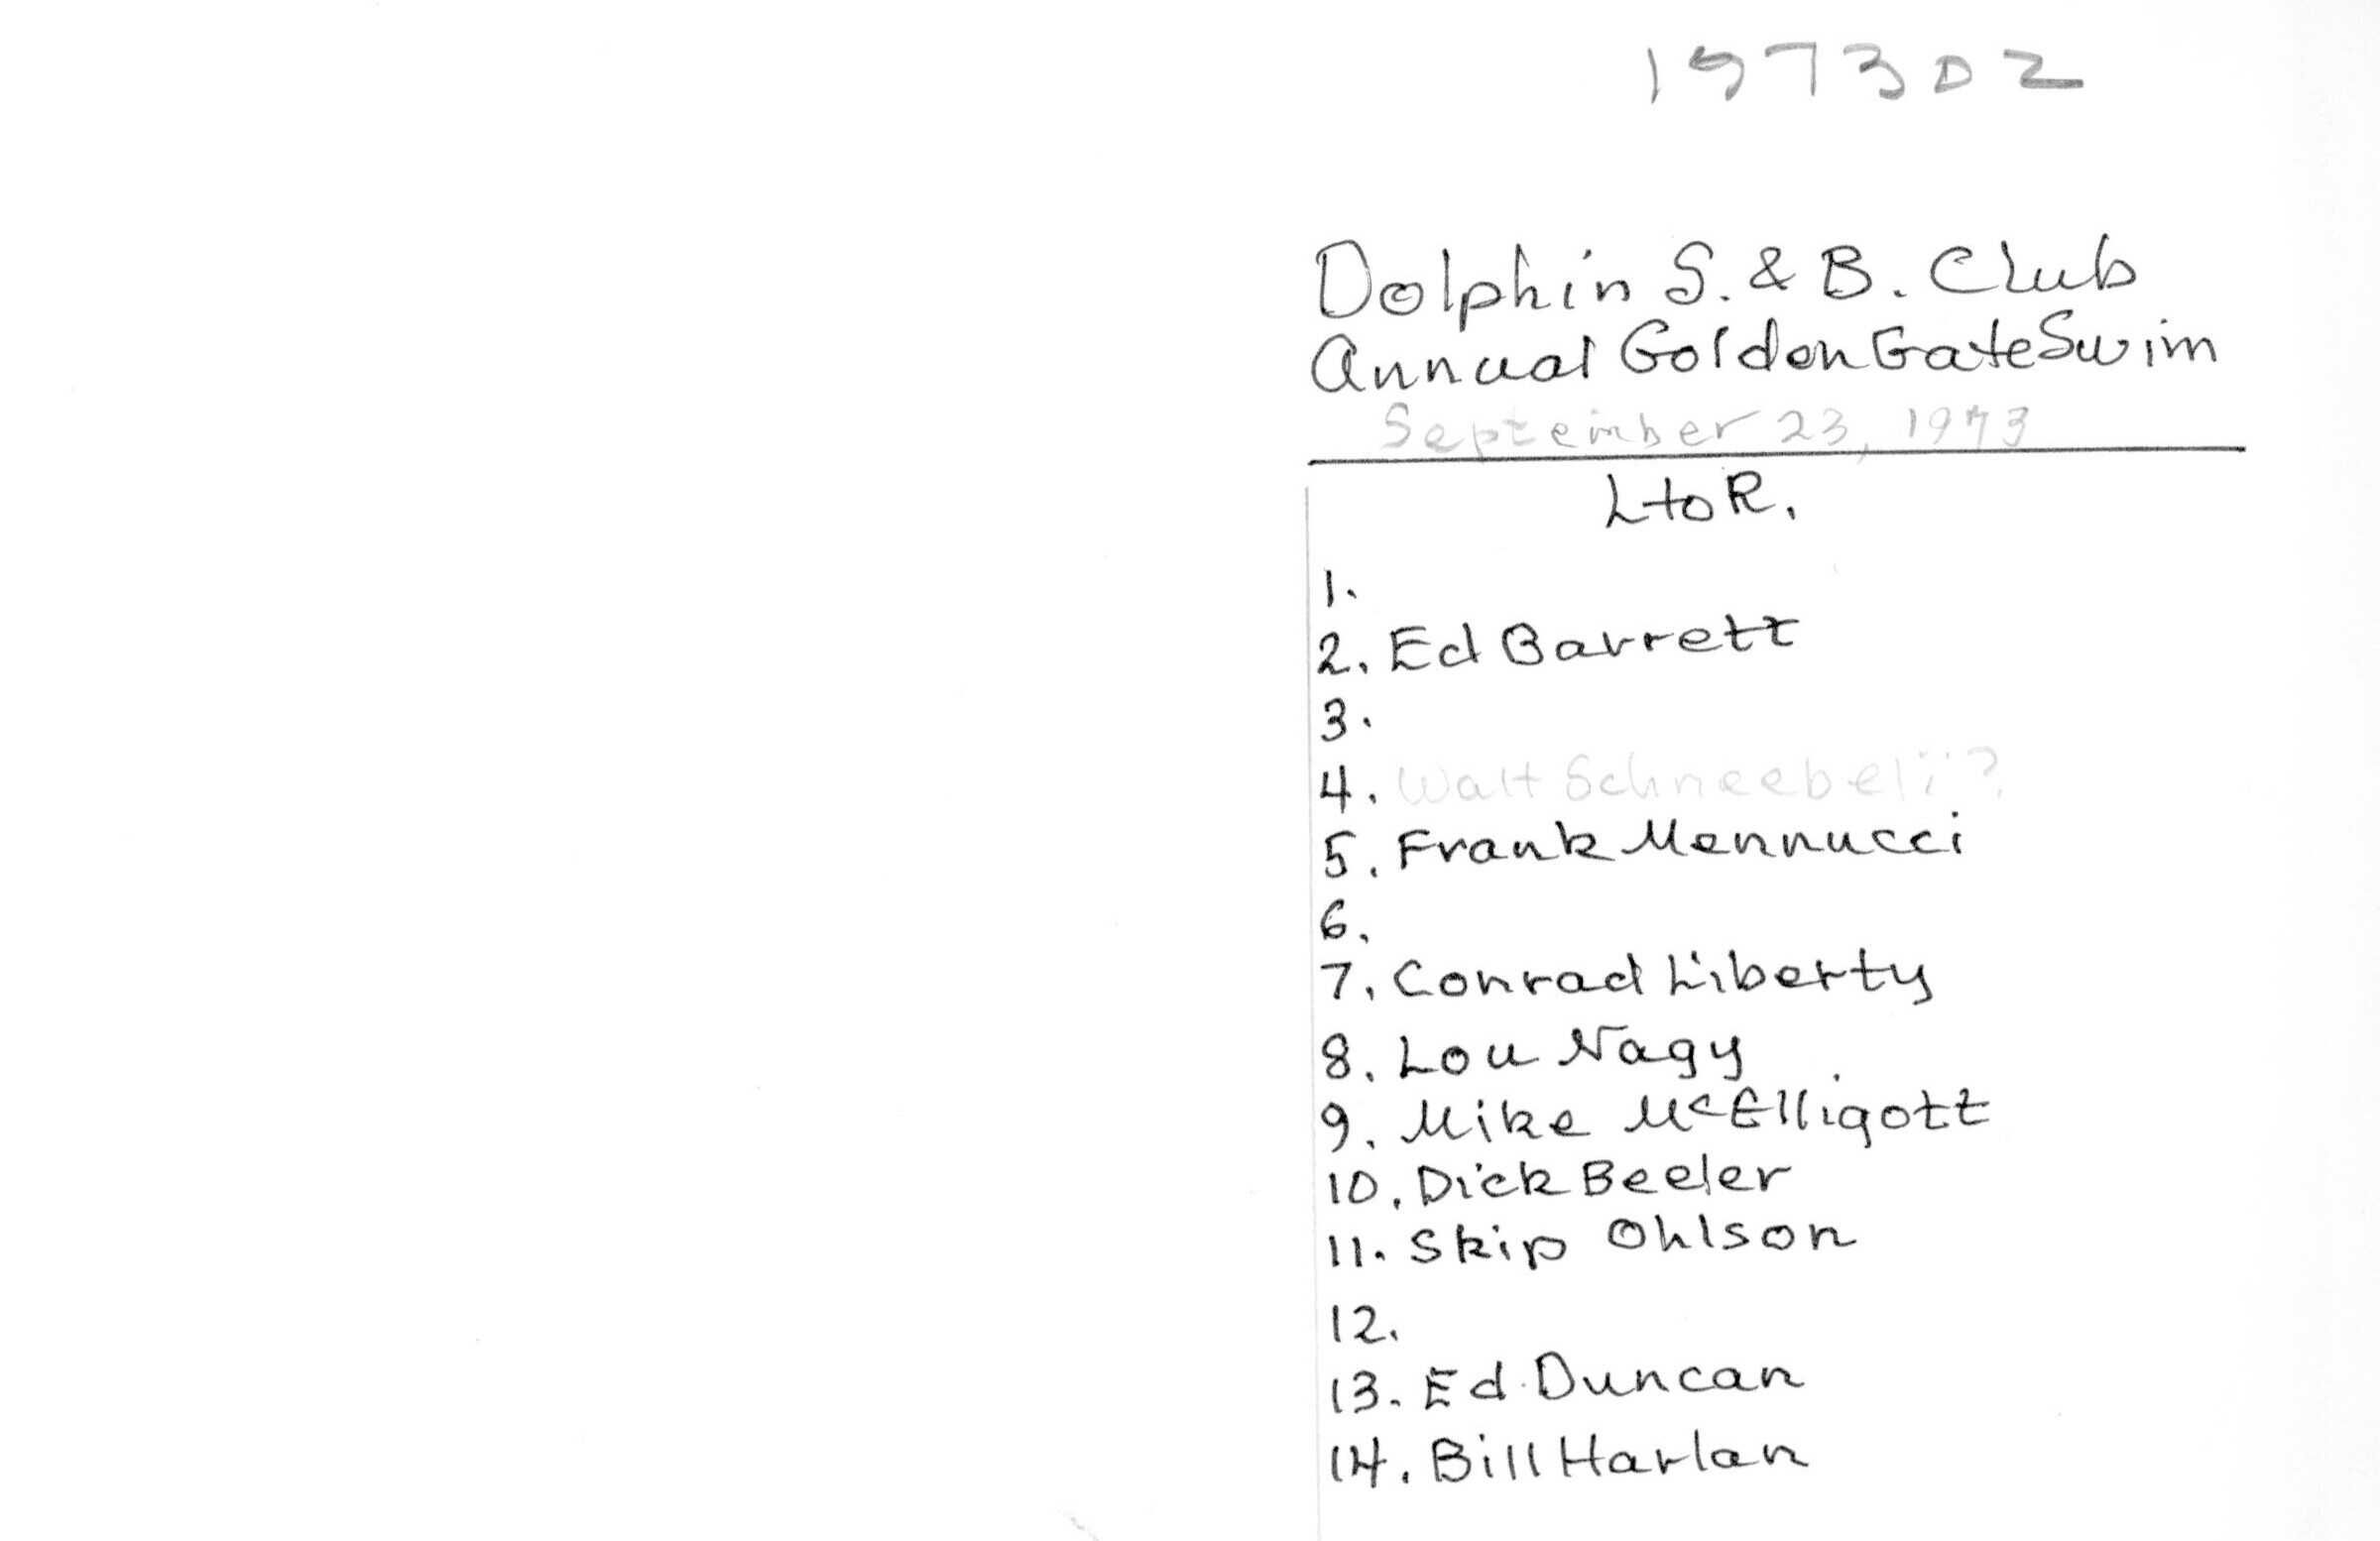 1973D2
Dolphin S. & B. Club
Annual Golden Gate Swim
September 23, 1973
L to R.
1.
2. Ed Barrett
3.
4. Walt Schneebeli?
5. Frank Mennucci
6.
7. Conrad Liberty
8. Lou Nagy
9. Mike McElligott
10. Dick Beeler
11. Skip Ohlson
12.
13. Ed Duncan
14. Bill Harlan